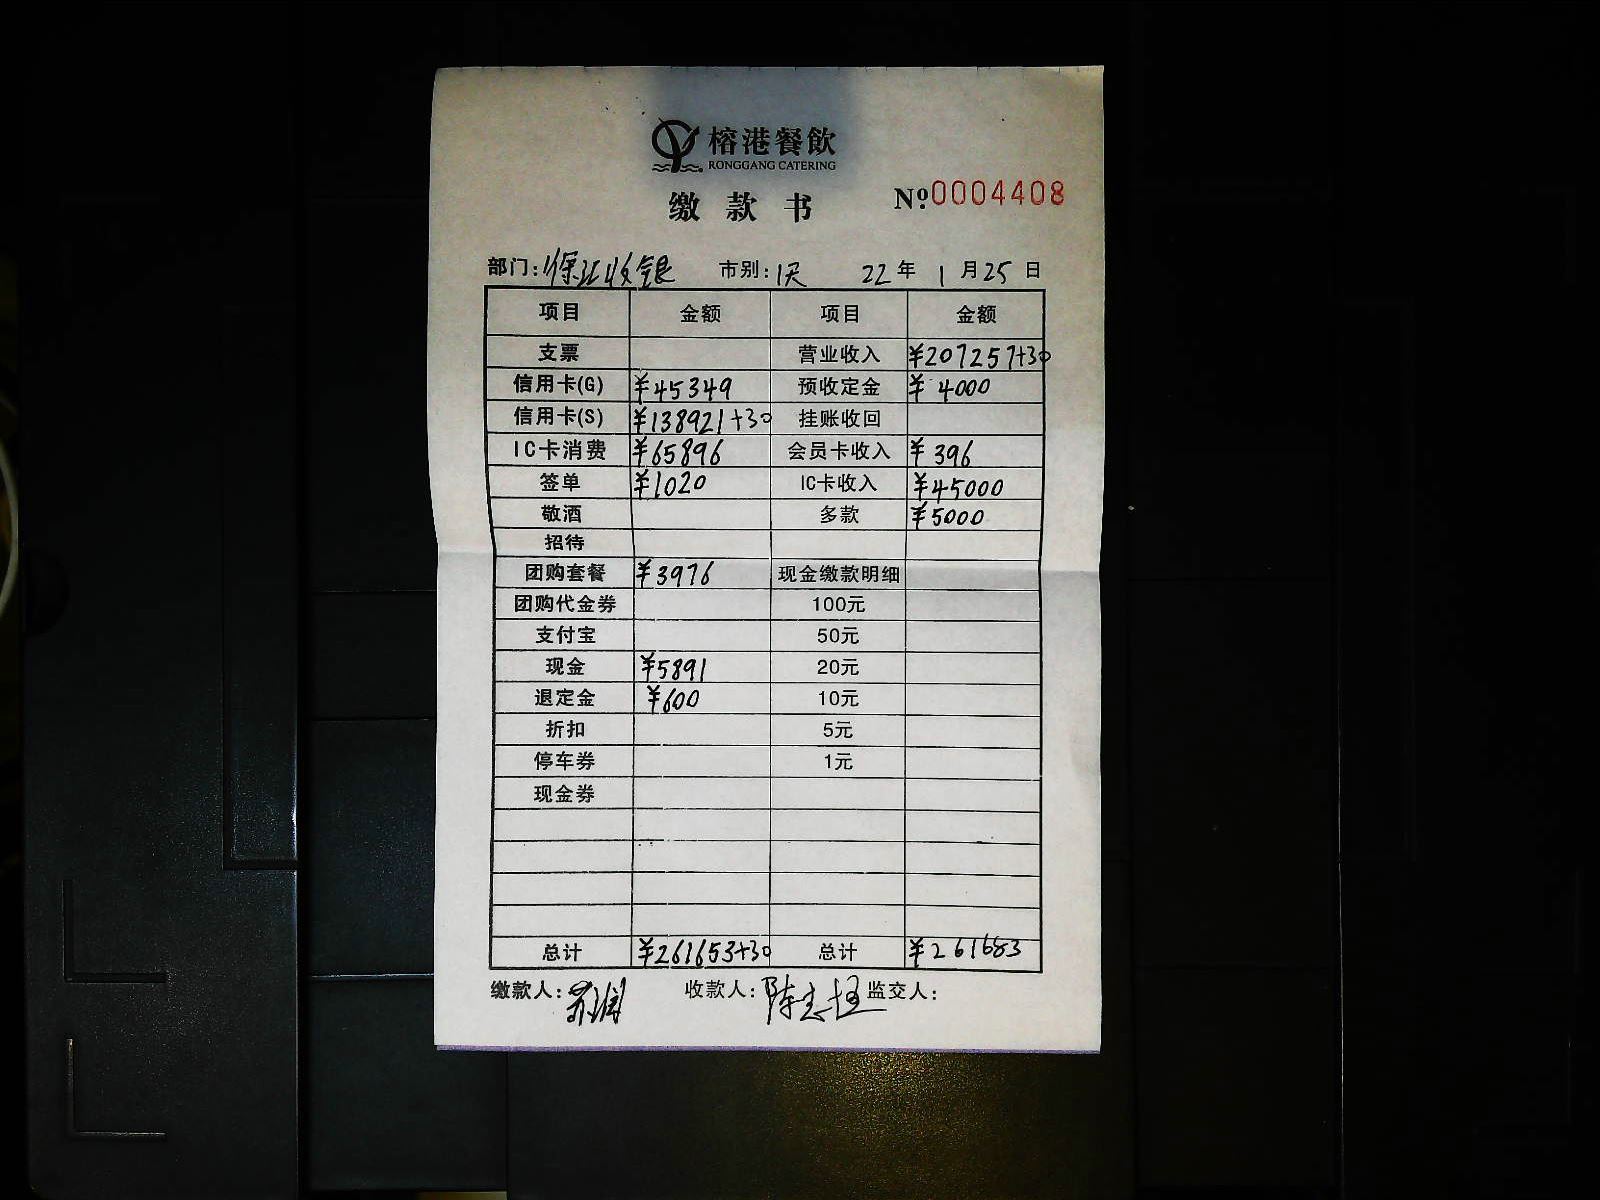 榕港餐飲
RONGGANG CATERING
缴款书 Nº:0004408
部门:徐汇收银 市别:1天 22年1月25日
项目 金额 项目 金额
支票 营业收入 ¥207257+30
信用卡(G) ¥45349 预收定金 ¥4000
信用卡(S) ¥138921+30 挂账收回
IC卡消费 ¥65896 会员卡收入 ¥396
签单 ¥1020 IC卡收入 ¥45000
敬酒 多款 ¥5000
招待
团购套餐 ¥3976 现金缴款明细
团购代金券 100元
支付宝 50元
现金 ¥5891 20元
退定金 ¥600 10元
折扣 5元
停车券 1元
现金券
总计 ¥261653+30 总计 ¥261683
缴款人: 收款人: 监交人: